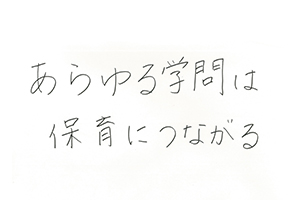 あらゆる学問は
保育につながる